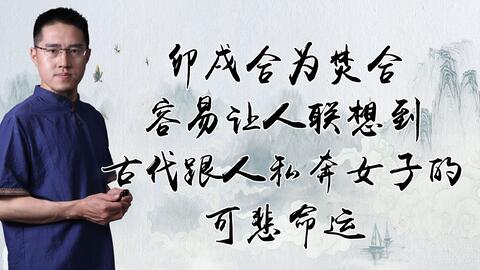 卯戌合为焚合
容易让人联想到
古代跟人私奔女子的
可悲命运